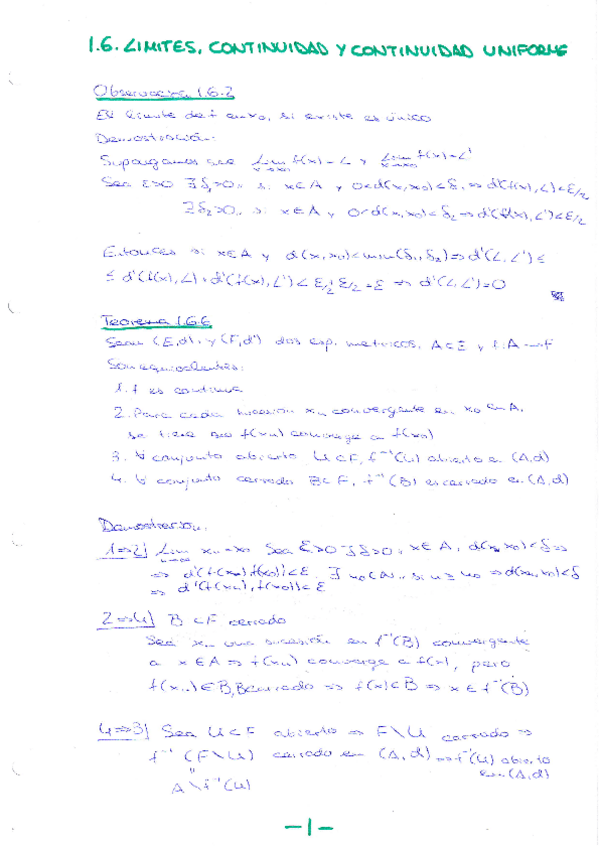 1.6. LIMITES, CONTINUIDAD Y CONTINUIDAD UNIFORME
Observación 1.6.2
El límite de f en x₀, si existe es único
Demostración.
Supongamos que lim f(x) = L y lim f(x) = L'
x→x₀ x→x₀
Sea ε>0 ∃ δ₁>0.. si x∈A y 0<d(x,x₀)<δ₁ ⇒ d'(f(x),L)<ε/2
∃ δ₂>0.. si x∈A y 0<d(x,x₀)<δ₂ ⇒ d'(f(x),L')<ε/2
Entonces si x∈A y d(x,x₀)<min(δ₁,δ₂) ⇒ d'(L,L') ≤
≤ d'(f(x),L) + d'(f(x),L') < ε/2 + ε/2 = ε ⇒ d'(L,L')=0
Teorema 1.6.6
Sean (E,d) y (F,d') dos esp. metricos, A⊂E y f:A→F
Son equivalentes:
1. f es continua
2. Para cada sucesión xₙ convergente en x₀ en A,
se tiene que f(xₙ) converge a f(x₀)
3. ∀ conjunto abierto U⊂F, f⁻¹(U) abierto en (A,d)
4. ∀ conjunto cerrado B⊂F, f⁻¹(B) es cerrado en (A,d)
Demostración.
1⇒2] lim xₙ = x₀ Sea ε>0 ∃ δ>0.. x∈A, d(x,x₀)<δ ⇒
⇒ d'(f(x),f(x₀))<ε. ∃ n₀∈N.. si n≥n₀ ⇒ d(xₙ,x₀)<δ
⇒ d'(f(xₙ),f(x₀))<ε
2⇒4] B⊂F cerrado
Sea xₙ una sucesión en f⁻¹(B) convergente
a x∈A ⇒ f(xₙ) converge a f(x), pero
f(xₙ)∈B, B cerrado ⇒ f(x)∈B ⇒ x∈f⁻¹(B)
4⇒3] Sea U⊂F abierto ⇒ F\U cerrado ⇒
f⁻¹(F\U) cerrado en (A,d) ⇒ f⁻¹(U) abierto
en (A,d)
"
A\f⁻¹(U)
-1-